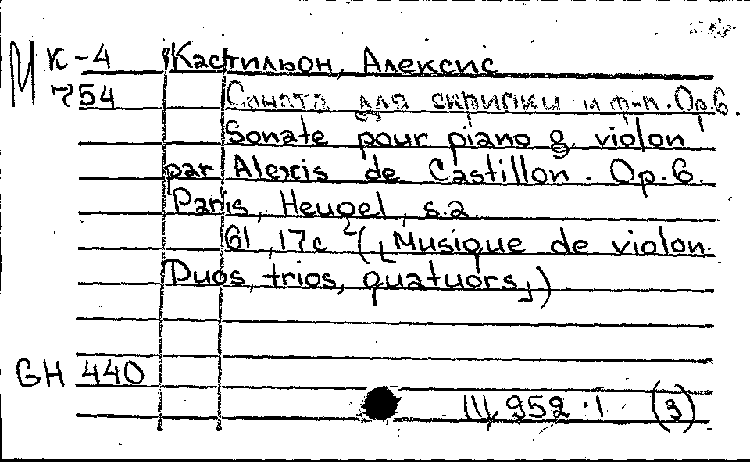 М К-4 Кастильон, Алексис
754 Соната для скрипки и ф-п. Ор.6.
Sonate pour piano & violon
par Alexis de Castillon. Op.6.
Paris, Heugel, s.a
61, 17с (Musique de violon.
Duos, trios, quatuors,)
GH 440
111,952.1 (3)